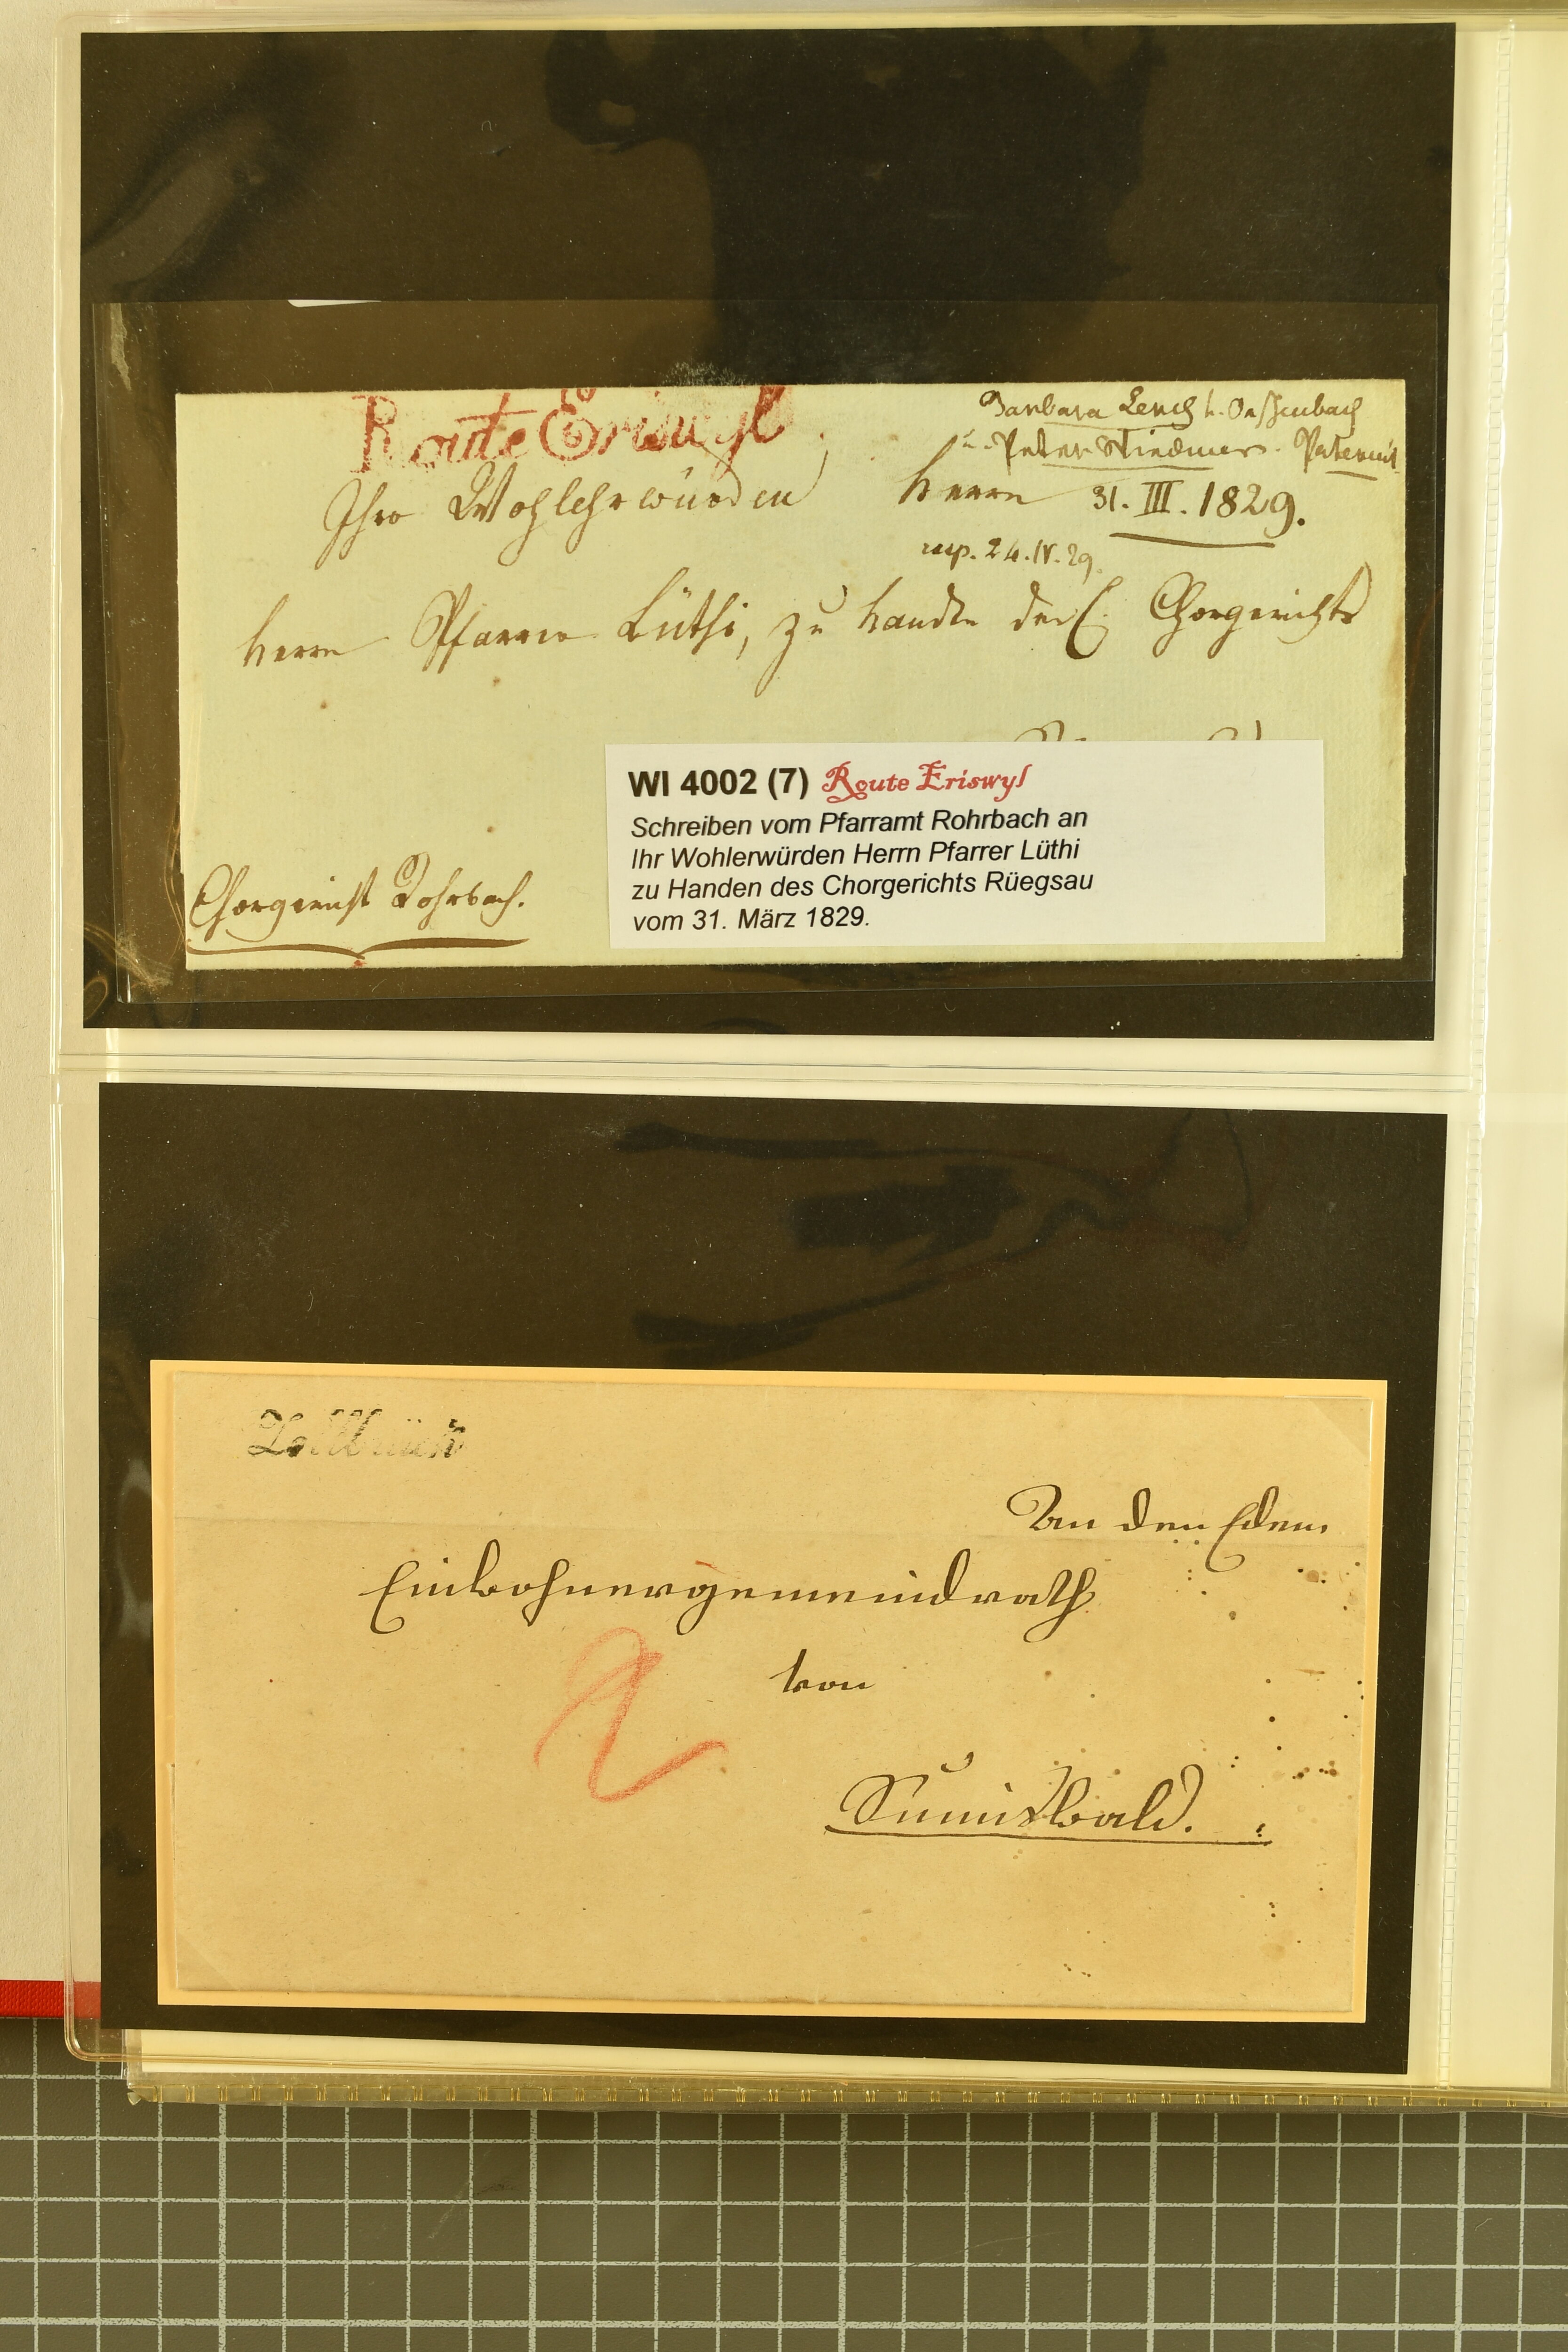 Route Eriswyl
Barbara Lerch v. Oeschenbach
Peter Wiedmer. Paternit.
Ihro Wohlehrwürden Herrn 31. III. 1829.
resp. 24. IV. 29.
Herrn Pfarrer Lüthi, zu Handen des E. Chorgerichts
Chorgericht Rohrbach.
WI 4002 (7) Route Eriswyl
Schreiben vom Pfarramt Rohrbach an
Ihr Wohlerwürden Herrn Pfarrer Lüthi
zu Handen des Chorgerichts Rüegsau
vom 31. März 1829.
Zollbrück
An den Edem
Einwohnergemeindrath
von
2
Sumiswald.